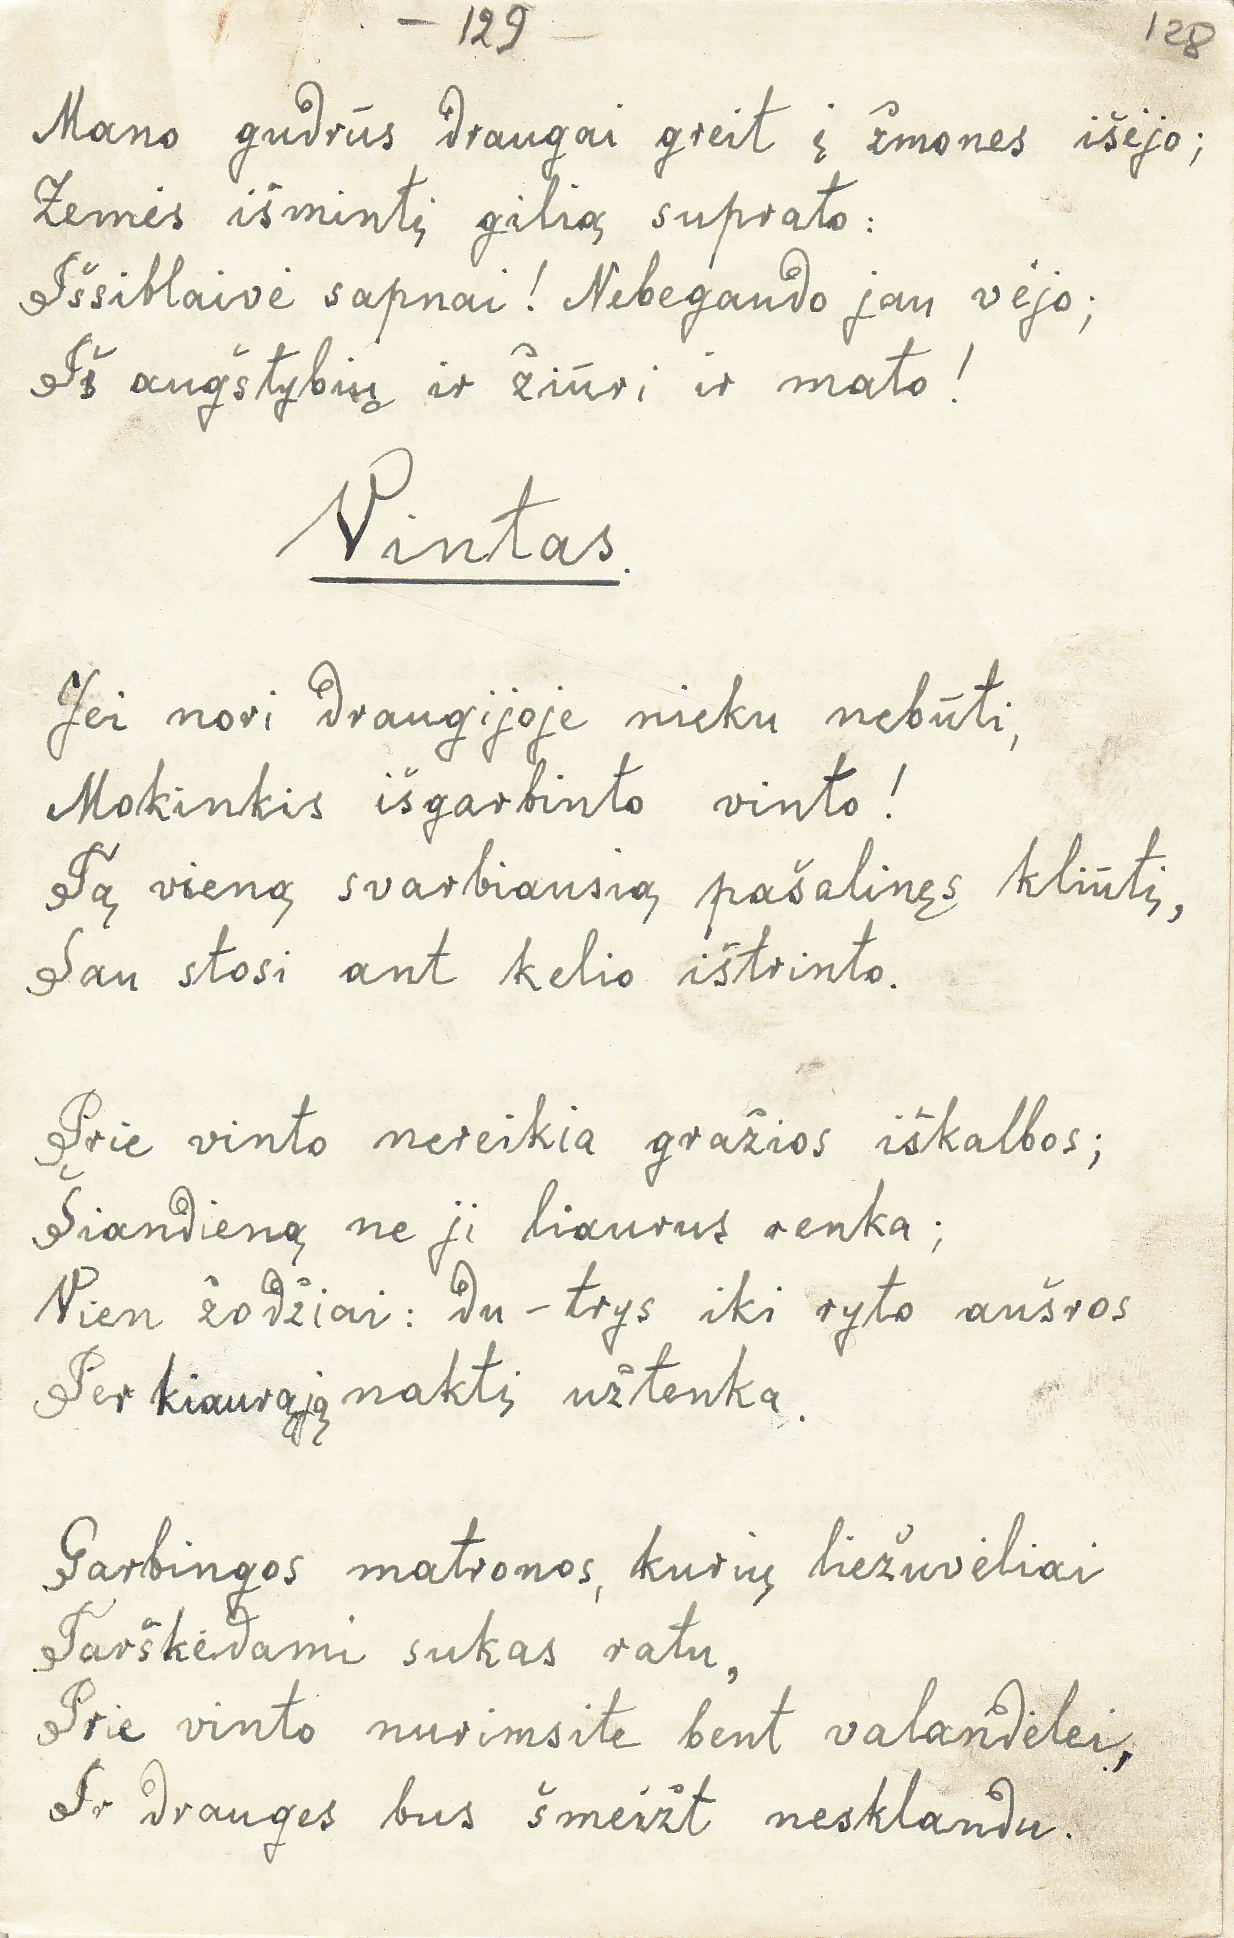 – 129 –
128
Mano gudrūs draugai greit į žmones išėjo;
Žemės išmintį gilią suprato:
Išsiblaivė sapnai! Nebegaudo jau vėjo;
Iš augštybių ir žiūri ir mato!
Vintas.
Jei nori draugijoje nieku nebūti,
Mokinkis išgarbinto vinto!
Tą vieną svarbiausią pašalinęs kliūtį,
Jau stosi ant kelio ištrinto.
Prie vinto nereikia gražios iškalbos;
Šiandieną ne ji liaurus renka;
Vien žodžiai: du – trys iki ryto aušros
Per kiaurąją naktį užtenka.
Garbingos matronos, kurių liežuvėliai
Tarškėdami sukas ratu,
Prie vinto nurimsite bent valandėlei,
Ir drauges bus šmeižt nesklandu.